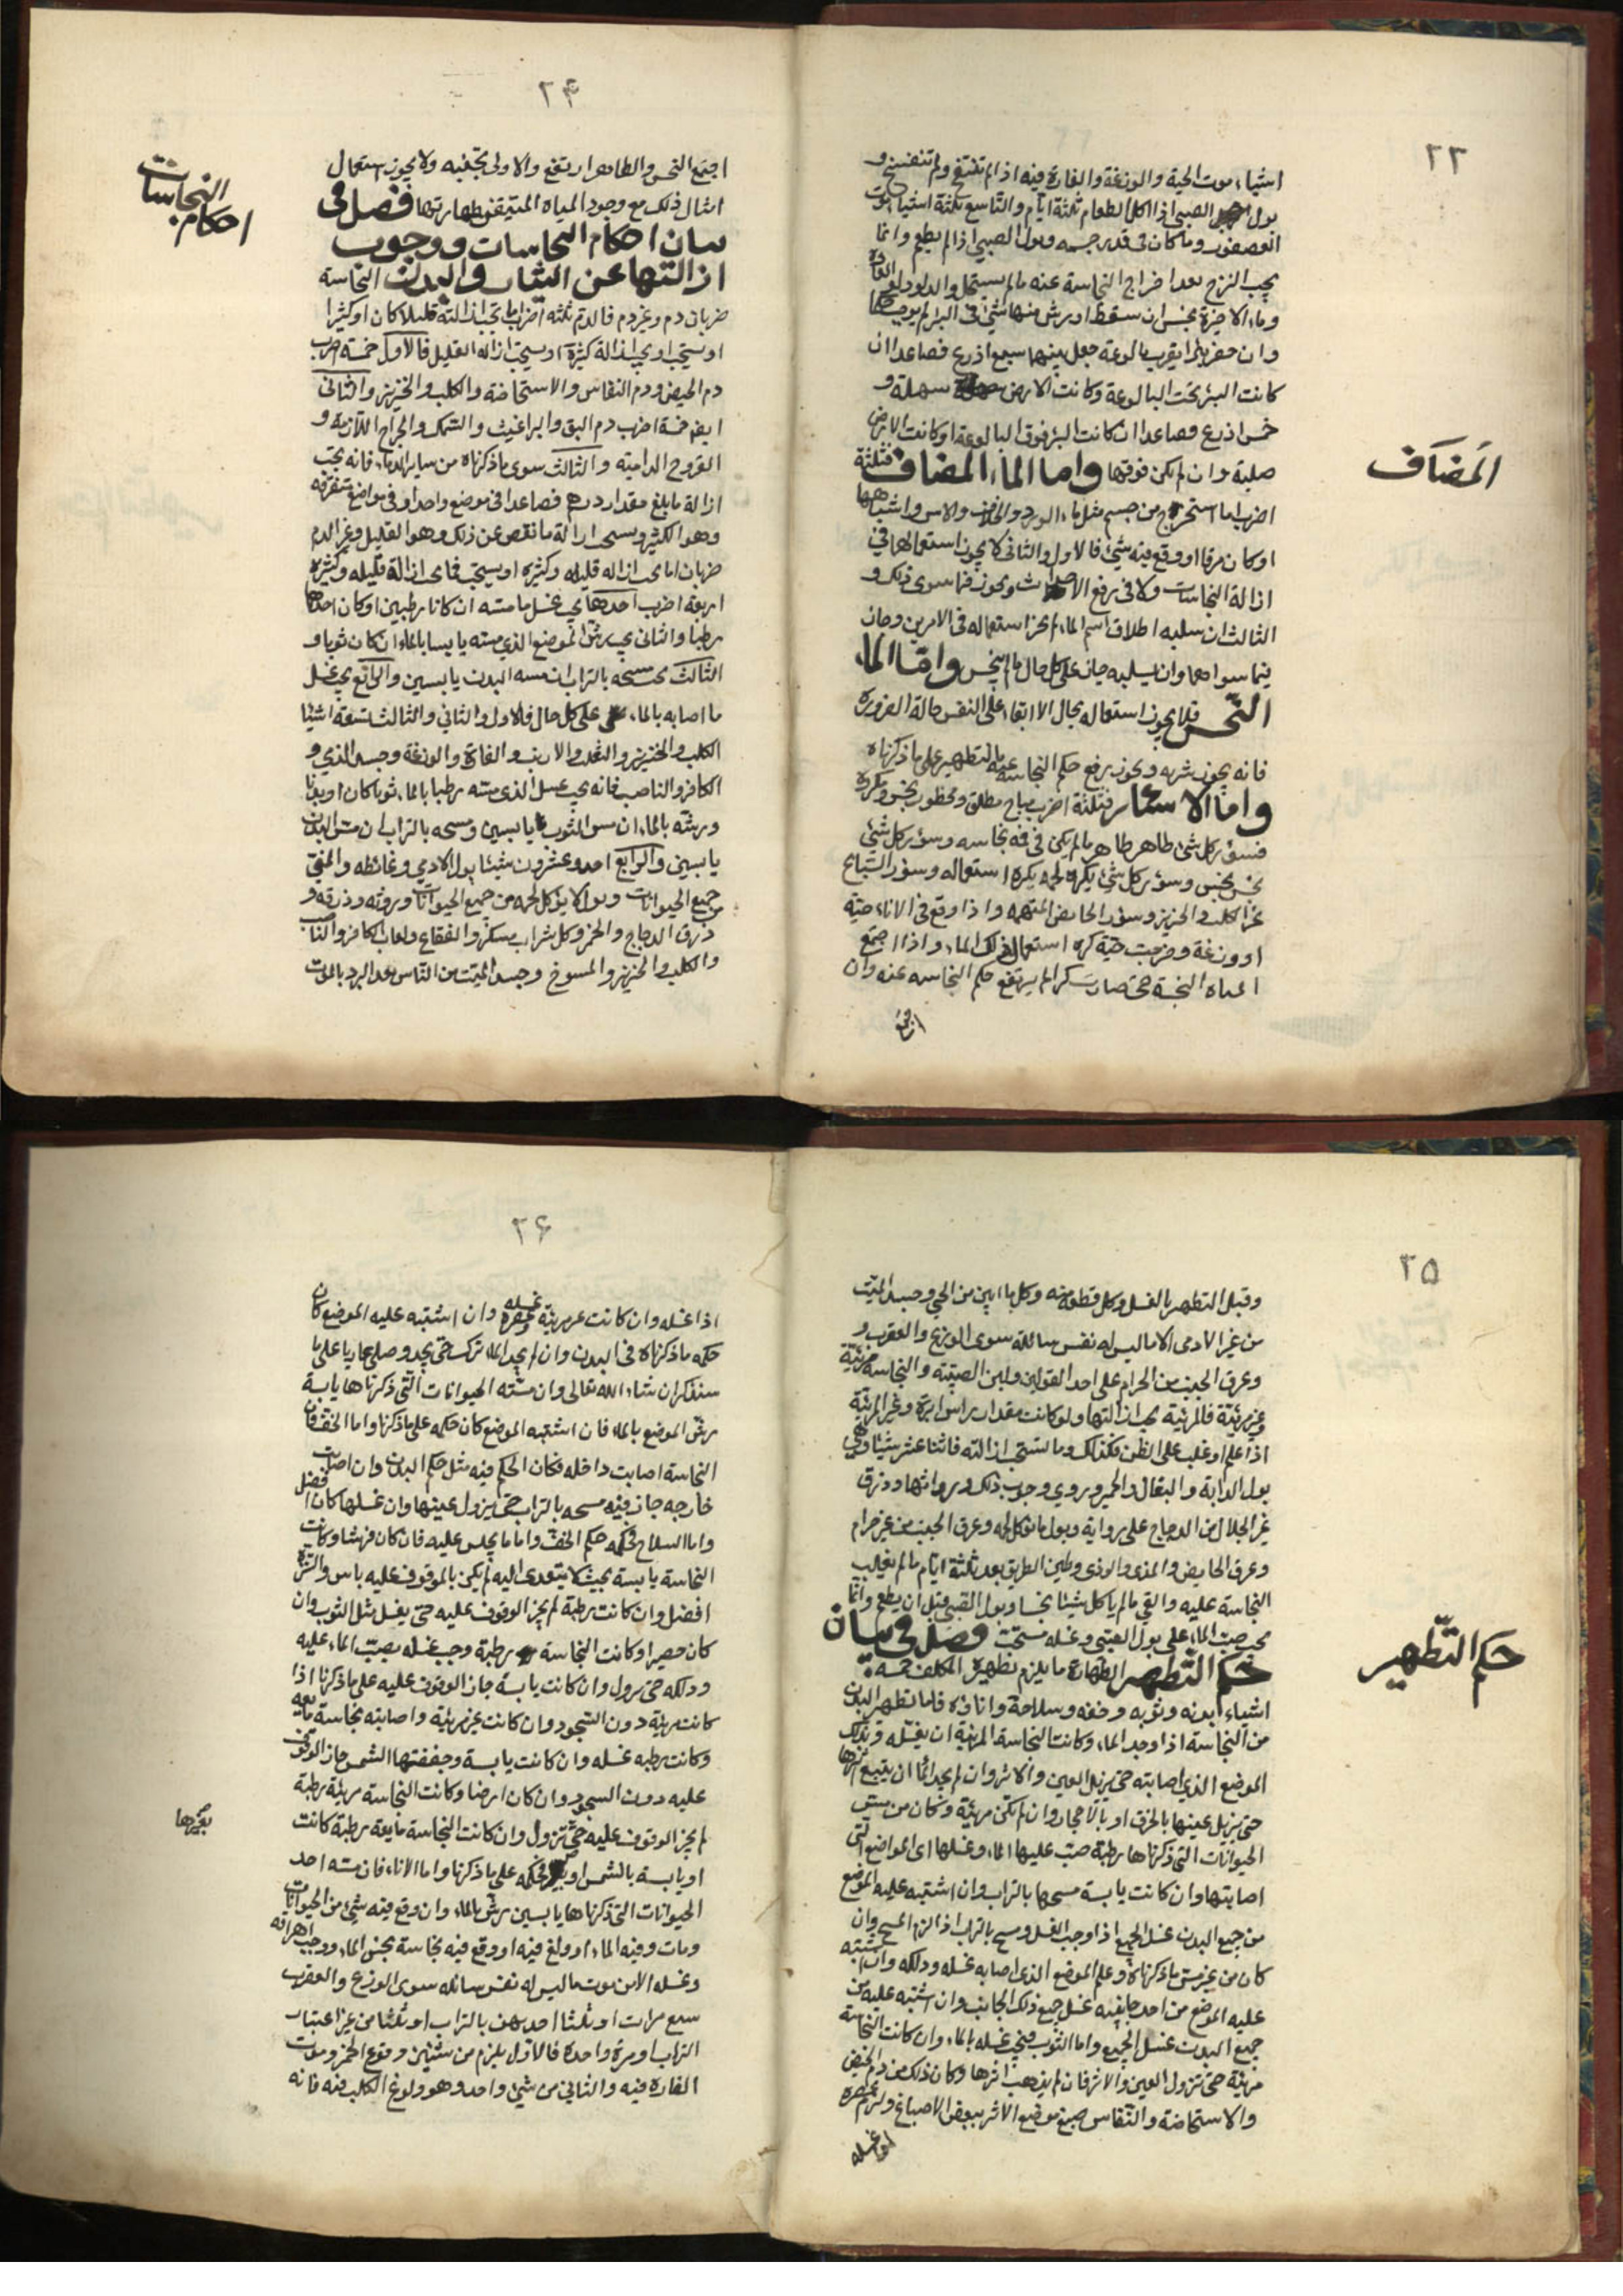 ٢٣
اشياء موت الحية والوزغة والفارة فيه اذا لم تنفتخ ولم تنفسخ و
بول الصبي اذا اكل الطعام ثلثة ايام والتاسع ثلثة اشياء موت
العصفور وما كان في قدر جسمه وبول الصبي اذا لم يطعم وانما
يجب النزح بعد اخراج النجاسة عنه ما لم يستحل والدلو دلو العادة
وماء الاخيرة نجس ان سقط او رش منها شئ في البئر لم يوجب حكما
وان حفر بئرا بقرب بالوعة جعل بينهما سبع اذرع فصاعدا ان
كانت البئر تحت البالوعة وكانت الارض سهلة و
خمس اذرع فصاعدا ان كانت البئر فوق البالوعة او كانت الارض
صلبة وان لم يكن فوقها واما الماء المضاف فثلثة
اضرب اما استخرج من جسم مثل ماء الورد والخلاف والاس واشباهها
او كان مرقا او وقع فيه شئ فالاول والثاني لا يجوز استعمالهما في
ازالة النجاسات ولا في رفع الاحداث ويجوز فيما سوى ذلك و
الثالث ان سلبه اطلاق اسم الماء لم يجز استعماله في الامرين وجاز
فيما سواهما وان لم يسلبه جاز على كل حال ما لم ينجس واما الماء
النجس فلا يجوز استعماله بحال الا ابقاء على النفس حالة الضرورة
فانه يجوز شربه ويجوز رفع حكم النجاسة عنه بالتطهير على ما ذكرناه
واما الاسئار فثلثة اضرب مباح مطلق ومحظور نجس ومكروه
فسؤر كل شئ طاهر طاهر ما لم يكن في فمه نجاسة وسؤر كل شئ
نجس نجس وسؤر كل شئ يكره لحمه يكره استعماله وسؤر السباع
غير الكلب والخنزير وسؤر الحايض المتهمة واذا وقع في الاناء حية
او وزغة وخرجت حية كره استعمال ذلك الماء واذا اجتمع
المياه النجسة حتى صارت كرا لم يرتفع حكم النجاسة عنه وان
اجتمع
المضاف
٢۴
اجتمع النجس والطاهر ارتفع والاولى تجنبه ولا يجوز استعمال
امثال ذلك مع وجود المياه المتيقن طهارتها فصل في
بيان احكام النجاسات ووجوب
ازالتها عن الثياب والبدن النجاسة
ضربان دم وغير دم فالدم ثلثة اضرب اما تجب ازالته قليلا كان او كثيرا
او يستحب او يجب ازالة كثيره او يستحب ازالة القليل فالاول خمسة اضرب
دم الحيض ودم النفاس والاستحاضة والكلب والخنزير والثاني
ايضا خمسة اضرب دم البق والبراغيث والسمك والجراح اللازمة و
القروح الدامية والثالث سوى ما ذكرناه من ساير الدماء فانه يجب
ازالة ما بلغ مقدار درهم فصاعدا في موضع واحد او في مواضع متفرقة
وهو الكثير ويستحب ازالة ما نقص عن ذلك وهو القليل وغير الدم
ضربان اما يجب ازالة قليله وكثيره او يستحب فما يجب ازالة قليله وكثيره
اربعة اضرب احدها يجب غسل ما مسه ان كانا رطبين او كان احدهما
رطبا والثاني يجب رش الموضع الذي مسه يابسا بالماء ان كان ثوبا و
الثالث يجب مسحه بالتراب ان مسه البدن يابسين والرابع يجب غسل
ما اصابه بالماء على كل حال فالاول والثاني والثالث تسعة اشياء
الكلب والخنزير والثعلب والارنب والفارة والوزغة وجسد الذمي و
الكافر والناصب فانه يجب غسل الذي مسته رطبا بالماء ثوبا كان او بدنا
ورشه بالماء ان مس الثوب يابسين ومسحه بالتراب ان مس البدن
يابسين والرابع احد وعشرون شيئا بول الادمي وغائطه والمني
من جميع الحيوانات وبول ما لا يؤكل لحمه من جميع الحيوانات وروثه وذرقه و
ذرق الدجاج والخمر وكل شراب مسكر والفقاع ولعاب الكافر والناصب
والكلب والخنزير والمسوخ وجسد الميت من الناس بعد البرد بالموت
احكام
النجاسات
٢۵
وقبل التطهير بالغسل وكل قطعة منه وكل ما ابين من الحي وجسد الميت
من غير الادمي الا ما ليس له نفس سائلة سوى الوزغ والعقرب و
وعرق الجنب من الحرام على احد القولين ولبن الصبية والنجاسة مرئية
وغير مرئية فالمرئية يجب ازالتها ولو كانت مقدار راس ابرة وغير المرئية
اذا علم او غلب على الظن فكذلك وما تستحب ازالته فاثنا عشر شيئا وهي
بول الدابة والبغال والحمير وروي وجوب ذلك وروانها وذرق
غير الجلال من الدجاج على رواية وبول ما يؤكل لحمه وعرق الجنب من غير حرام
وعرق الحايض والمذي والوذي وطين الطريق بعد ثلثة ايام ما لم يغلب
النجاسة عليه والقي ما لم ياكل شيئا نجسا وبول الصبي قبل ان يطعم وانما
يجب صب الماء على بول الصبي وغسله مستحب فصل في بيان
حكم التطهير الطهارة ما يلزم تطهيره المكلف خمسة
اشياء بدنه وثوبه وخفه وسلاحه واناؤه فاما تطهير البدن
من النجاسة اذا وجد الماء وكانت النجاسة المرئية ان يغسله ويدلك
الموضع الذي اصابته حتى يزيل العين والاثر وان لم يجد الماء ان يتبع اثرها
حتى يزيل عينها بالخرق او بالاحجار وان لم تكن مرئية وكان من مس
الحيوانات التي ذكرناها رطبة صب عليها الماء وغسلها اي المواضع التي
اصابتها وان كانت يابسة مسحها بالتراب وان اشتبه عليه الموضع
من جميع البدن غسل الجميع اذا وجب الغسل ومسح بالتراب اذا لزم المسح وان
كان من غير مس ما ذكرناه وعلم الموضع الذي اصابه غسله ودلكه وان اشتبه
عليه الموضع من احد جانبيه غسل جميع ذلك الجانب وان اشتبه عليه من
جميع البدن غسل الجميع واما الثوب فيجب غسله بالماء وان كانت النجاسة
مرئية حتى تزول العين والاثر فان لم يذهب اثرها وكان ذلك من دم الحيض
والاستحاضة والنفاس صبغ موضع الاثر ببعض الاصباغ ولزم عصره
اذا غسله
حكم التطهير
٢۶
اذا غسله وان كانت غير مرئية غسله وعصره وان اشتبه عليه الموضع كان
حكمه ما ذكرناه في البدن وان لم يجد الماء تركه حتى يجد وصلى عاريا على ما
سنذكر ان شاء الله تعالى وان مسته الحيوانات التي ذكرناها يابسة
رش الموضع بالماء فان اشتبه الموضع كان حكمه على ما ذكرنا واما الخف فان
النجاسة اصابت داخله فكان الحكم فيه مثل حكم البدن وان اصابت
خارجه جاز فيه مسحه بالتراب حتى يزول عينها وان غسلها كان افضل
واما السلاح فحكمه حكم الخف واما ما يجلس عليه فان كان فرشا وكانت
النجاسة يابسة بحيث لا يتعدى اليه لم يكن بالوقوف عليه باس والتنزه
افضل وان كانت رطبة لم يجز الوقوف عليه حتى يغسل مثل الثوب وان
كان حصيرا وكانت النجاسة رطبة وجب غسله بصب الماء عليه
ودلكه حتى يزول وان كانت يابسة جاز الوقوف عليه على ما ذكرنا اذا
كانت مرئية دون السجود وان كانت غير مرئية واصابته نجاسة مايعة
وكانت رطبة غسله وان كانت يابسة وجففتها الشمس جاز الوقوف
عليه دون السجود وان كان ارضا وكانت النجاسة مرئية رطبة
لم يجز الوقوف عليه حتى تزول وان كانت النجاسة مايعة رطبة كانت
او يابسة بالشمس او بغير فحكمه على ما ذكرنا واما الاناء فان مسه احد
الحيوانات التي ذكرناها يابسين رش بالماء وان وقع فيه شئ من الحيوانات
ومات وفيه الماء او ولغ فيه او وقع فيه نجاسة نجس الماء ووجب اهراقه
وغسله الا من موت ما ليس له نفس سائلة سوى الوزغ والعقرب
سبع مرات او ثلثا احديهن بالتراب او ثلثا من غير اعتبار
التراب او مرة واحدة فالاول يلزم من شيئين وقوع الخمر وموت
الفارة فيه والثاني من شئ واحد وهو ولوغ الكلب فيه فانه
بغيرها